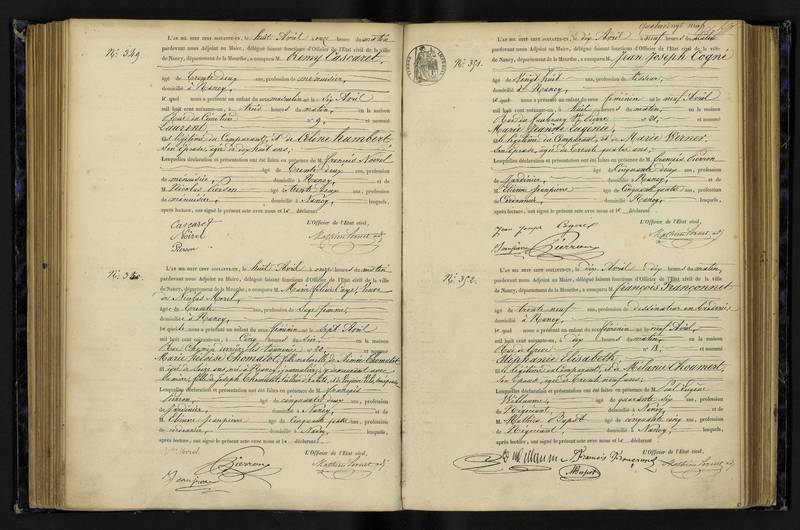 N° 349
L'AN MIL HUIT CENT SOIXANTE-UN, le huit Avril à onze heures du matin
pardevant nous Adjoint au Maire, délégué faisant fonctions d'Officier de l'État civil de la ville
de Nancy, département de la Meurthe, a comparu M. Remy Cascaret
âgé de trente deux ans, profession de menuisier,
domicilié à Nancy,
lequel nous a présenté un enfant de sexe masculin né le six Avril
mil huit cent soixante-un, à trois heures du matin, en la maison
Rue du Cimetière N° 9, et nommé
Laurent,
fils légitime du Comparant, et de Céline Humbert,
son épouse, âgée de dix huit ans;
Lesquelles déclaration et présentation ont été faites en présence de M. François Noirel
âgé de trente deux ans, profession
de menuisier, domicilié à Nancy, et de
M. Nicolas Pierson âgé de trente deux ans, profession
de menuisier, domicilié à Nancy, lesquels,
après lecture, ont signé le présent acte avec nous et le déclarant
L'Officier de l'Etat civil,
Cascaret
Noirel
Pierson
N° 350
L'AN MIL HUIT CENT SOIXANTE-UN, le huit Avril à onze heures du matin
pardevant nous Adjoint au Maire, délégué faisant fonctions d'Officier de l'État civil de la ville
de Nancy, département de la Meurthe, a comparu M. Marie Félicité Veuve
de Nicolas Morel,
âgée de trente ans, profession de Sage femme,
domiciliée à Nancy,
lequel nous a présenté un enfant du sexe féminin né le sept Avril
mil huit cent soixante-un, à cinq heures du soir, en la maison
Rue Chemin derrière les tanneries N° 22, et nommé
Marie Héloïse Thomalot, fille naturelle de Thomalot
Lesquelles déclaration et présentation ont été faites en présence de M. François
Pierron, âgé de cinquante deux ans, profession
de Jardinier, domicilié à Nancy, et de
M. Etienne Jeanpierre âgé de cinquante quatre ans, profession
de domicilié à Nancy, lesquels,
après lecture, ont signé le présent acte avec nous et le déclarant
L'Officier de l'Etat civil,
Pierron
Jeanpierre
N° 351.
L'AN MIL HUIT CENT SOIXANTE-UN, le dix Avril à neuf heures du matin
pardevant nous Adjoint au Maire, délégué faisant fonctions d'Officier de l'État civil de la ville
de Nancy, département de la Meurthe, a comparu M. Jean Joseph Cogné
âgé de vingt huit ans, profession de
domicilié à Nancy,
lequel nous a présenté un enfant du sexe féminin né le neuf Avril
mil huit cent soixante-un, à heures du matin, en la maison
Rue du Faubourg St Pierre N° 21, et nommé
Marie Jeanne Eugénie,
fille légitime du Comparant, et de Marie Verner
son épouse, âgée de trente quatre ans;
Lesquelles déclaration et présentation ont été faites en présence de M. François Pierron
âgé de cinquante deux ans, profession
de Jardinier, domicilié à Nancy, et de
M. Etienne Jeanpierre âgé de cinquante quatre ans, profession
de domicilié à Nancy, lesquels,
après lecture, ont signé le présent acte avec nous et le déclarant
L'Officier de l'Etat civil,
Jean Joseph Cogné
Jeanpierre Pierron
N° 352.
L'AN MIL HUIT CENT SOIXANTE-UN, le dix Avril à dix heures du matin,
pardevant nous Adjoint au Maire, délégué faisant fonctions d'Officier de l'État civil de la ville
de Nancy, département de la Meurthe, a comparu M. François Françonnet
âgé de trente neuf ans, profession de dessinateur en broderie
domicilié à Nancy,
lequel nous a présenté un enfant du sexe féminin né le neuf Avril,
mil huit cent soixante-un, à dix heures du matin, en la maison
Rue de N° 18, et nommé
Stéphanie Elisabeth,
fille légitime du Comparant, et de Mélanie Thouvenet,
son épouse, âgée de trente neuf ans;
Lesquelles déclaration et présentation ont été faites en présence de M. Paul Eugène
Willaume, âgé de quarante six ans, profession
de Négociant, domicilié à Nancy, et de
M. Mathieu Bapst âgé de cinquante cinq ans, profession
de Négociant, domicilié à Nancy, lesquels,
après lecture, ont signé le présent acte avec nous et le déclarant
L'Officier de l'Etat civil,